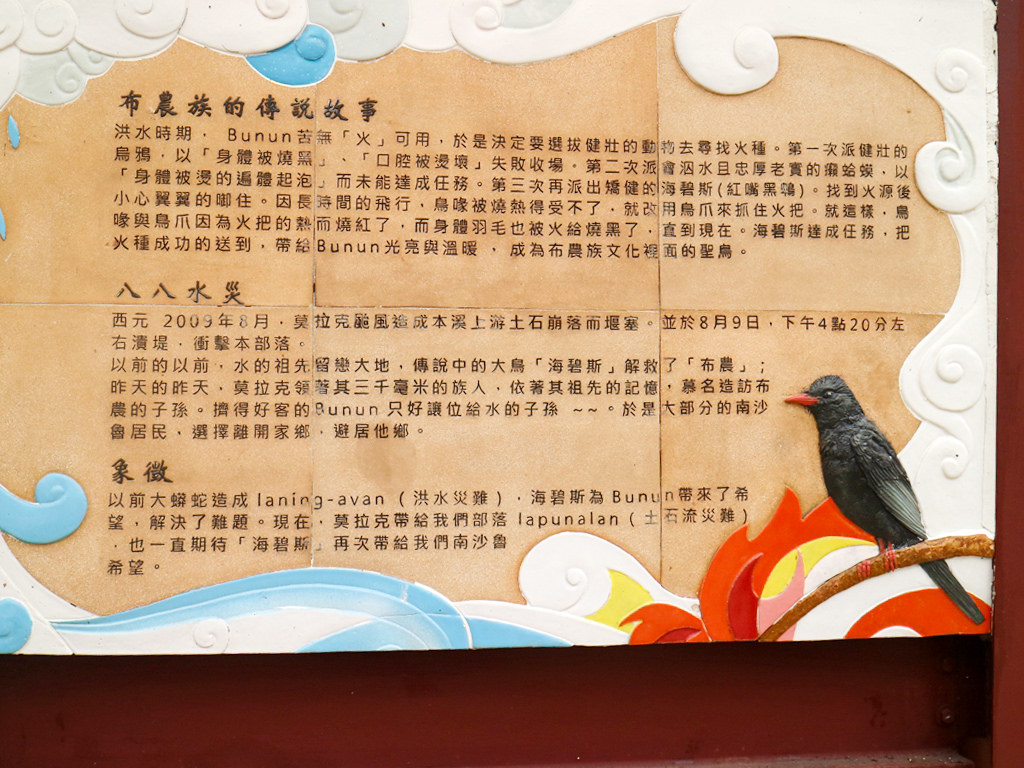 布農族的傳說故事
洪水時期， Bunun苦無「火」可用，於是決定要選拔健壯的動物去尋找火種。第一次派健壯的
烏鴉，以「身體被燒黑」、「口腔被燙壞」失敗收場。第二次派會泅水且忠厚老實的癩蛤蟆，以
「身體被燙的遍體起泡」而未能達成任務。第三次再派出矯健的海碧斯(紅嘴黑鵯)。找到火源後
小心翼翼的啣住。因長時間的飛行，鳥喙被燒熱得受不了，就改用鳥爪來抓住火把。就這樣，鳥
喙與鳥爪因為火把的熱而燒紅了，而身體羽毛也被火給燒黑了，直到現在。海碧斯達成任務，把
火種成功的送到，帶給Bunun光亮與溫暖，成為布農族文化裡面的聖鳥。
八八水災
西元 2009年8月，莫拉克颱風造成本溪上游土石崩落而堰塞。並於8月9日，下午4點20分左
右潰堤，衝擊本部落。
以前的以前，水的祖先留戀大地，傳說中的大鳥「海碧斯」解救了「布農」；
昨天的昨天，莫拉克領著其三千毫米的族人，依著其祖先的記憶，慕名造訪布
農的子孫。擠得好客的Bunun 只好讓位給水的子孫 ~~。於是大部分的南沙
魯居民，選擇離開家鄉，避居他鄉。
象徵
以前大蟒蛇造成 laning-avan（洪水災難），海碧斯為Bunun帶來了希
望，解決了難題。現在，莫拉克帶給我們部落 lapunalan（土石流災難）
，也一直期待「海碧斯」再次帶給我們南沙魯
希望。